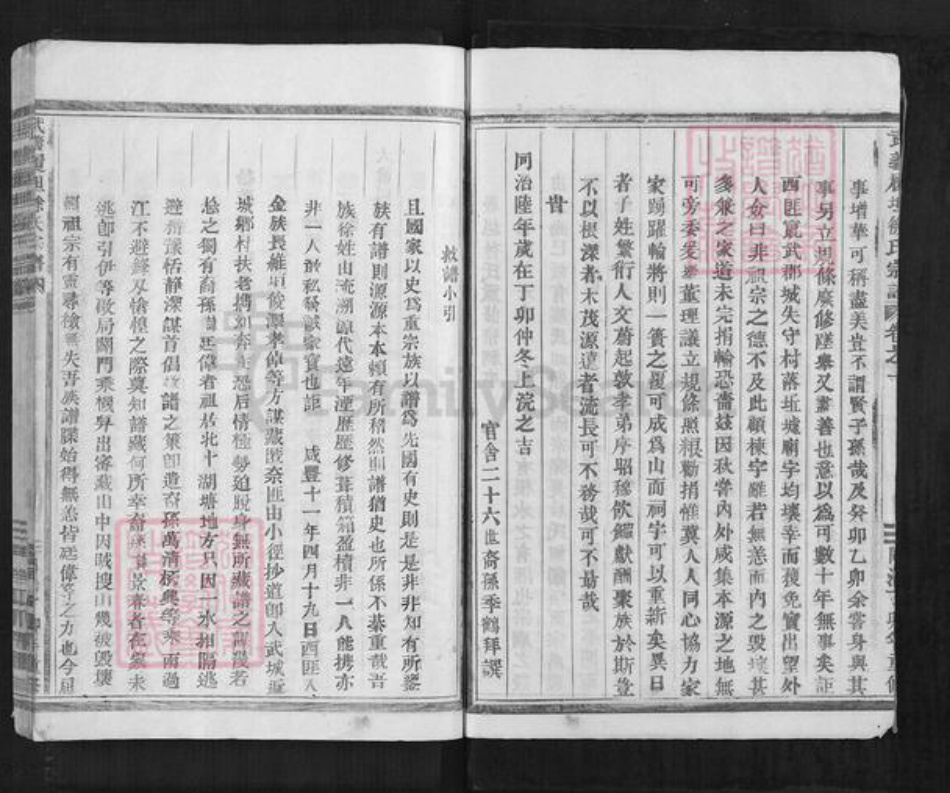 事增華可稱盡美豈不謂賢子孫哉及癸卯乙卯余嘗身與其
事另立規條廢修墜舉又盡善也意以為可數十年無事矣詎
西匪竄武郡城失守村落垢墟廟宇均壞幸而獲免實出望外
人僉曰非祖宗之德不及此顧棟宇雖若無恙而內之毀壞甚
多兼之家道未完捐輸恐嗇茲因秋嘗內外咸集本源之地無
可旁委爰舉董理議立規條照糧勸捐惟冀人人同心協力家
家踴躍輸將則一簣之覆可成為山而祠宇可以重新矣異日
者子姓繁衍人文蔚起敦孝弟序昭穆飲餾獻酬聚族於斯豈
不以根深者木茂源遠者流長可不務哉可不勗哉
旹
同治陸年歲在丁卯仲冬上浣之吉
官舍二十六世裔孫季鶴拜譔
救譜小引
且國家以史為重宗族以譜為先國有史則是是非非知有所鑒
族有譜則源源本本賴有所稽然則譜猶史也所係不綦重哉吾
族徐姓由流溯源代遠年湮歷歷修葺積箱盈櫝非一人能携亦
非一人敢私發該家寶也詎 咸豐十一年四月十九日西匪入
金族長維垣俊澤孝偉等方謀藏匿奈匪由小徑抄道卽入武城近
城鄉村扶老携幼奔走恐后情極勢迫脫身無所藏譜之
之獨有裔孫 廷偉者祖居北十湖塘地方只因一水相隔逃
避 恬靜深謀首倡救譜之策卽遣 孫萬清 興等來 而過
江不避鋒刃倉惶之際莫知譜藏何所幸 在 未
逃卽引伊等 局開門乘機舁出密藏山中因賊搜山幾被毀壞
祖宗有靈尋檢無失吾族譜牒始得無恙皆廷偉等之力也今屆